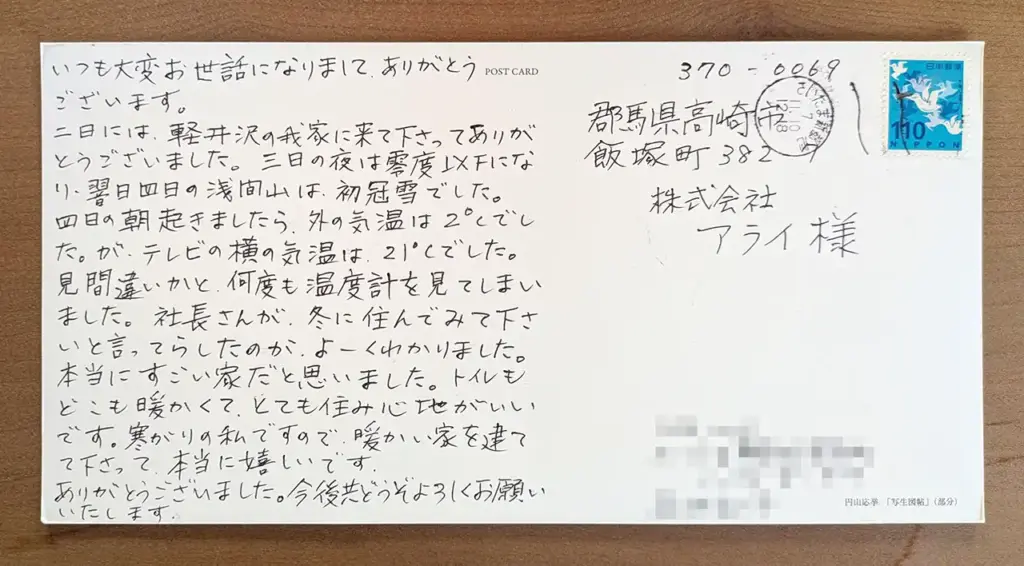 いつも大変お世話になりまして、ありがとう
ございます。
二日には、軽井沢の我家に来て下さってありが
とうございました。三日の夜は零度以下にな
り、翌日四日の浅間山は、初冠雪でした。
四日の朝起きましたら、外の気温は2℃でし
た。が、テレビの横の気温は、21℃でした。
見間違いかと、何度も温度計を見てしまい
ました。社長さんが、冬に住んでみて下さ
いと言ってらしたのが、よーくわかりました。
本当にすごい家だと思いました。トイレも
どこも暖かくて、とても住み心地がいい
です。寒がりの私ですので、暖かい家を建て
て下さって、本当に嬉しいです。
ありがとうございました。今後共どうぞよろしくお願い
いたします。
POST CARD
370-0069
群馬県高崎市
飯塚町382
株式会社
アライ様
日本郵便
110
NIPPON
さいたま新都心
円山応挙 「写生図帖」(部分)